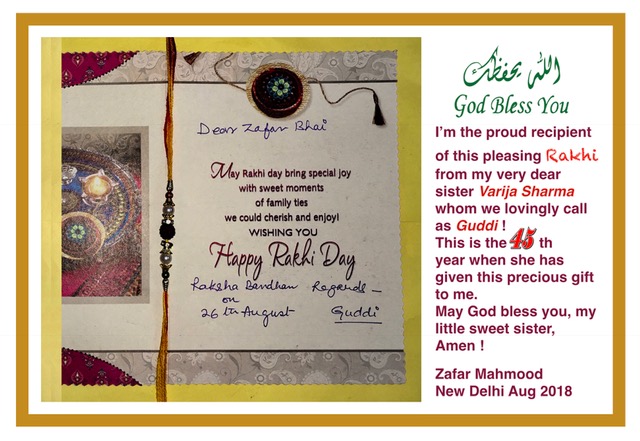 Dear Zafar Bhai
May Rakhi day bring special joy
with sweet moments
of family ties
we could cherish and enjoy!
WISHING YOU
Happy Rakhi Day
Raksha Bandhan Regards –
on
26th August Guddi
الله يحفظك
God Bless You
I’m the proud recipient
of this pleasing Rakhi
from my very dear
sister Varija Sharma
whom we lovingly call
as Guddi !
This is the 45 th
year when she has
given this precious gift
to me.
May God bless you, my
little sweet sister,
Amen !
Zafar Mahmood
New Delhi Aug 2018